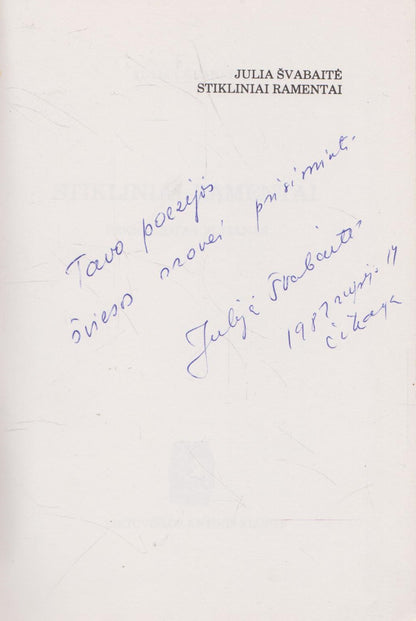 JULIA ŠVABAITĖ
STIKLINIAI RAMENTAI
Tavo poezijos
šviesos srovei prisiminti-
Julija Švabaitė
1987 rugsėjo 14
Čikaga